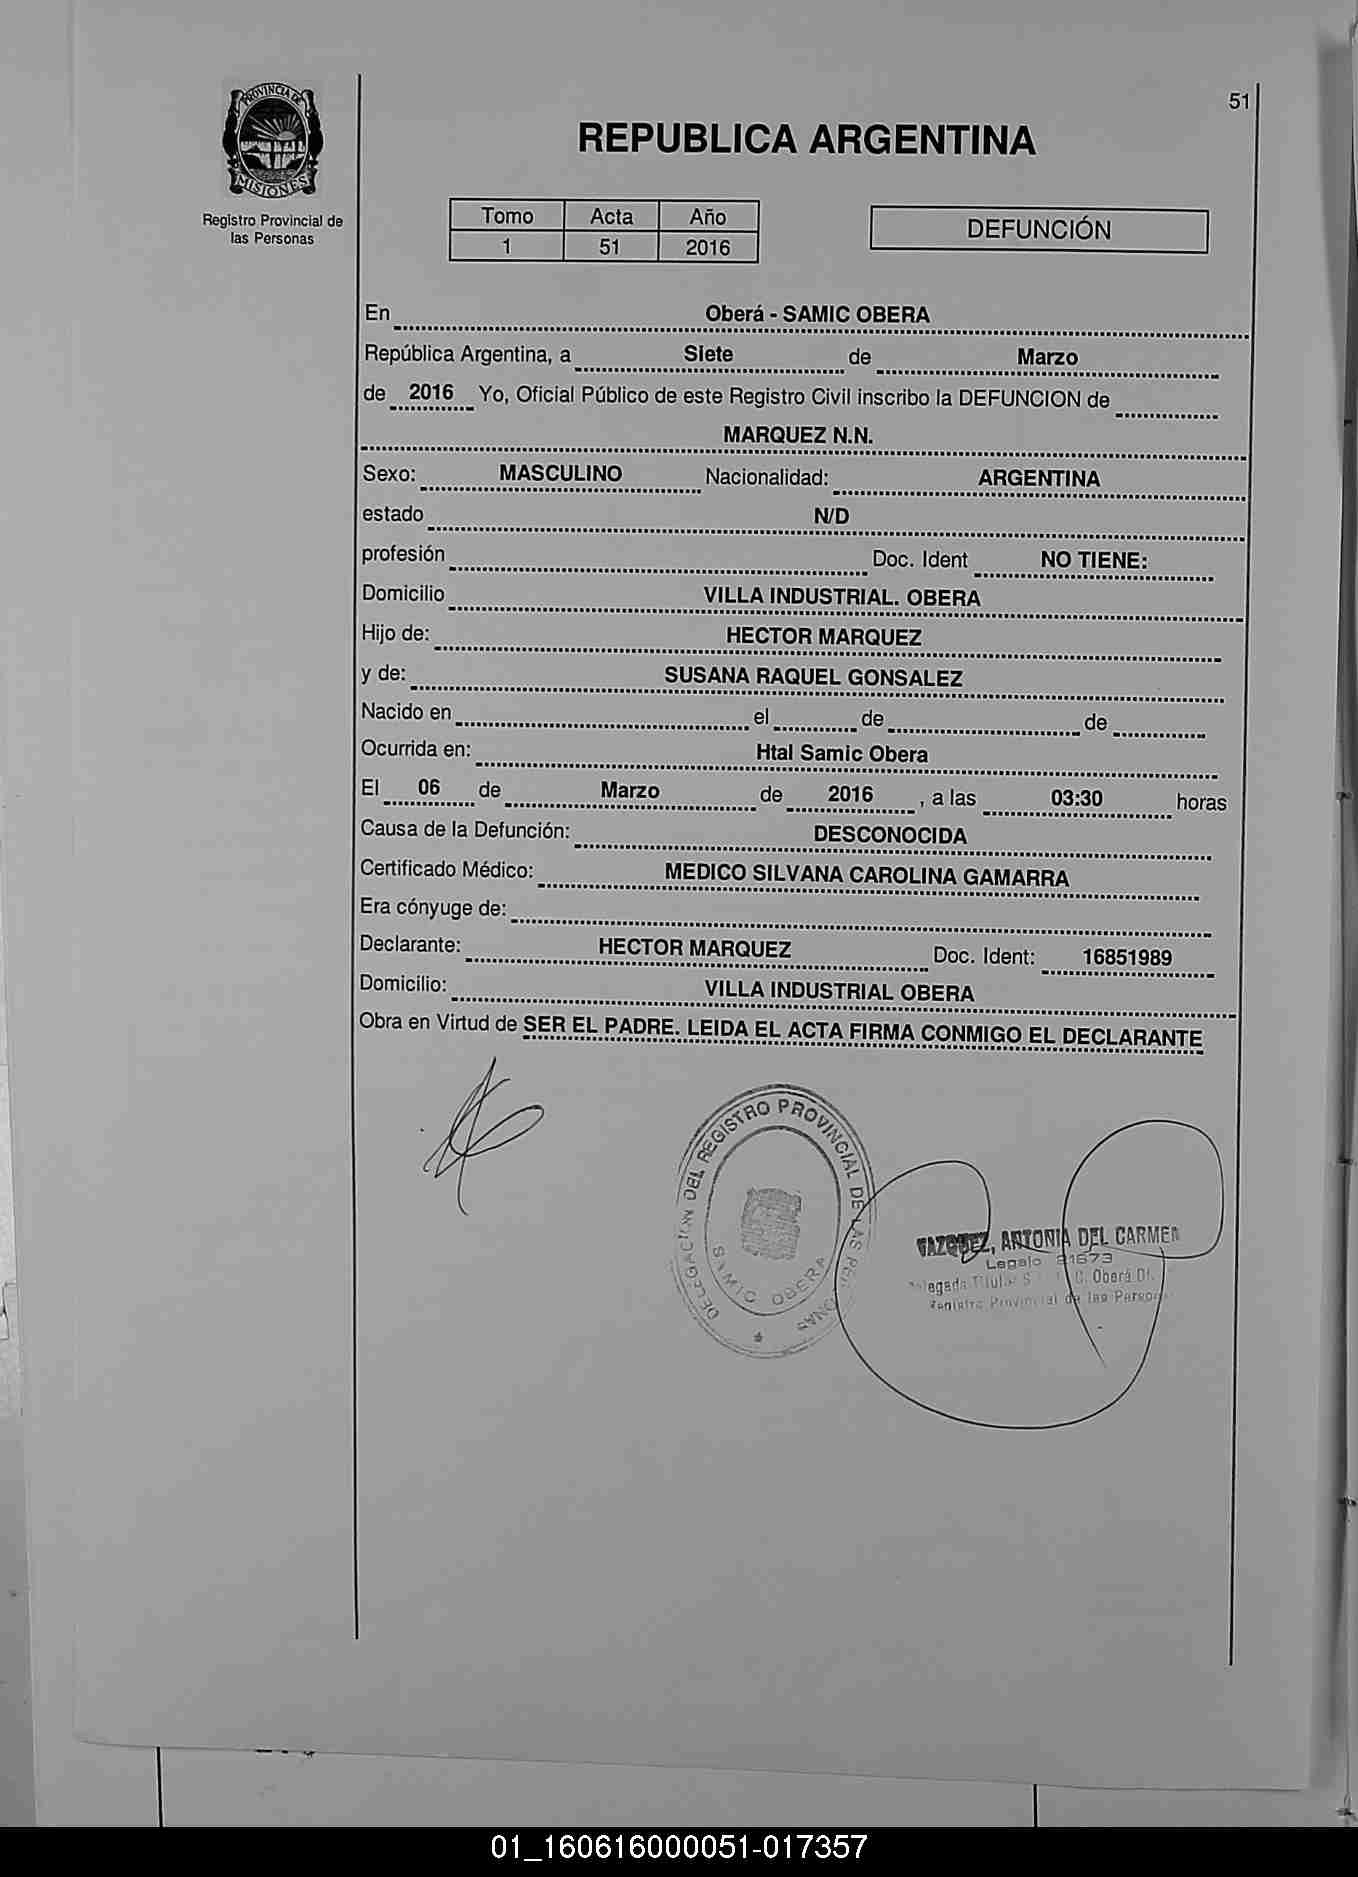 51
PROVINCIA DE
MISIONES
Registro Provincial de
las Personas
REPUBLICA ARGENTINA
Tomo Acta Año
1 51 2016
DEFUNCIÓN
En Oberá - SAMIC OBERA
República Argentina, a Siete de Marzo
de 2016 Yo, Oficial Público de este Registro Civil inscribo la DEFUNCION de
MARQUEZ N.N.
Sexo: MASCULINO Nacionalidad: ARGENTINA
estado N/D
profesión Doc. Ident NO TIENE:
Domicilio VILLA INDUSTRIAL. OBERA
Hijo de: HECTOR MARQUEZ
y de: SUSANA RAQUEL GONSALEZ
Nacido en el de de
Ocurrida en: Htal Samic Obera
El 06 de Marzo de 2016 , a las 03:30 horas
Causa de la Defunción: DESCONOCIDA
Certificado Médico: MEDICO SILVANA CAROLINA GAMARRA
Era cónyuge de:
Declarante: HECTOR MARQUEZ Doc. Ident: 16851989
Domicilio: VILLA INDUSTRIAL OBERA
Obra en Virtud de SER EL PADRE. LEIDA EL ACTA FIRMA CONMIGO EL DECLARANTE
DELEGACION DEL REGISTRO PROVINCIAL DE LAS PERSONAS
SAMIC OBERA
VAZQUEZ, ANTONIA DEL CARMEN
Legajo 21673
Delegada Titular Oberá
Registro Provincial de las Personas
01_160616000051-017357